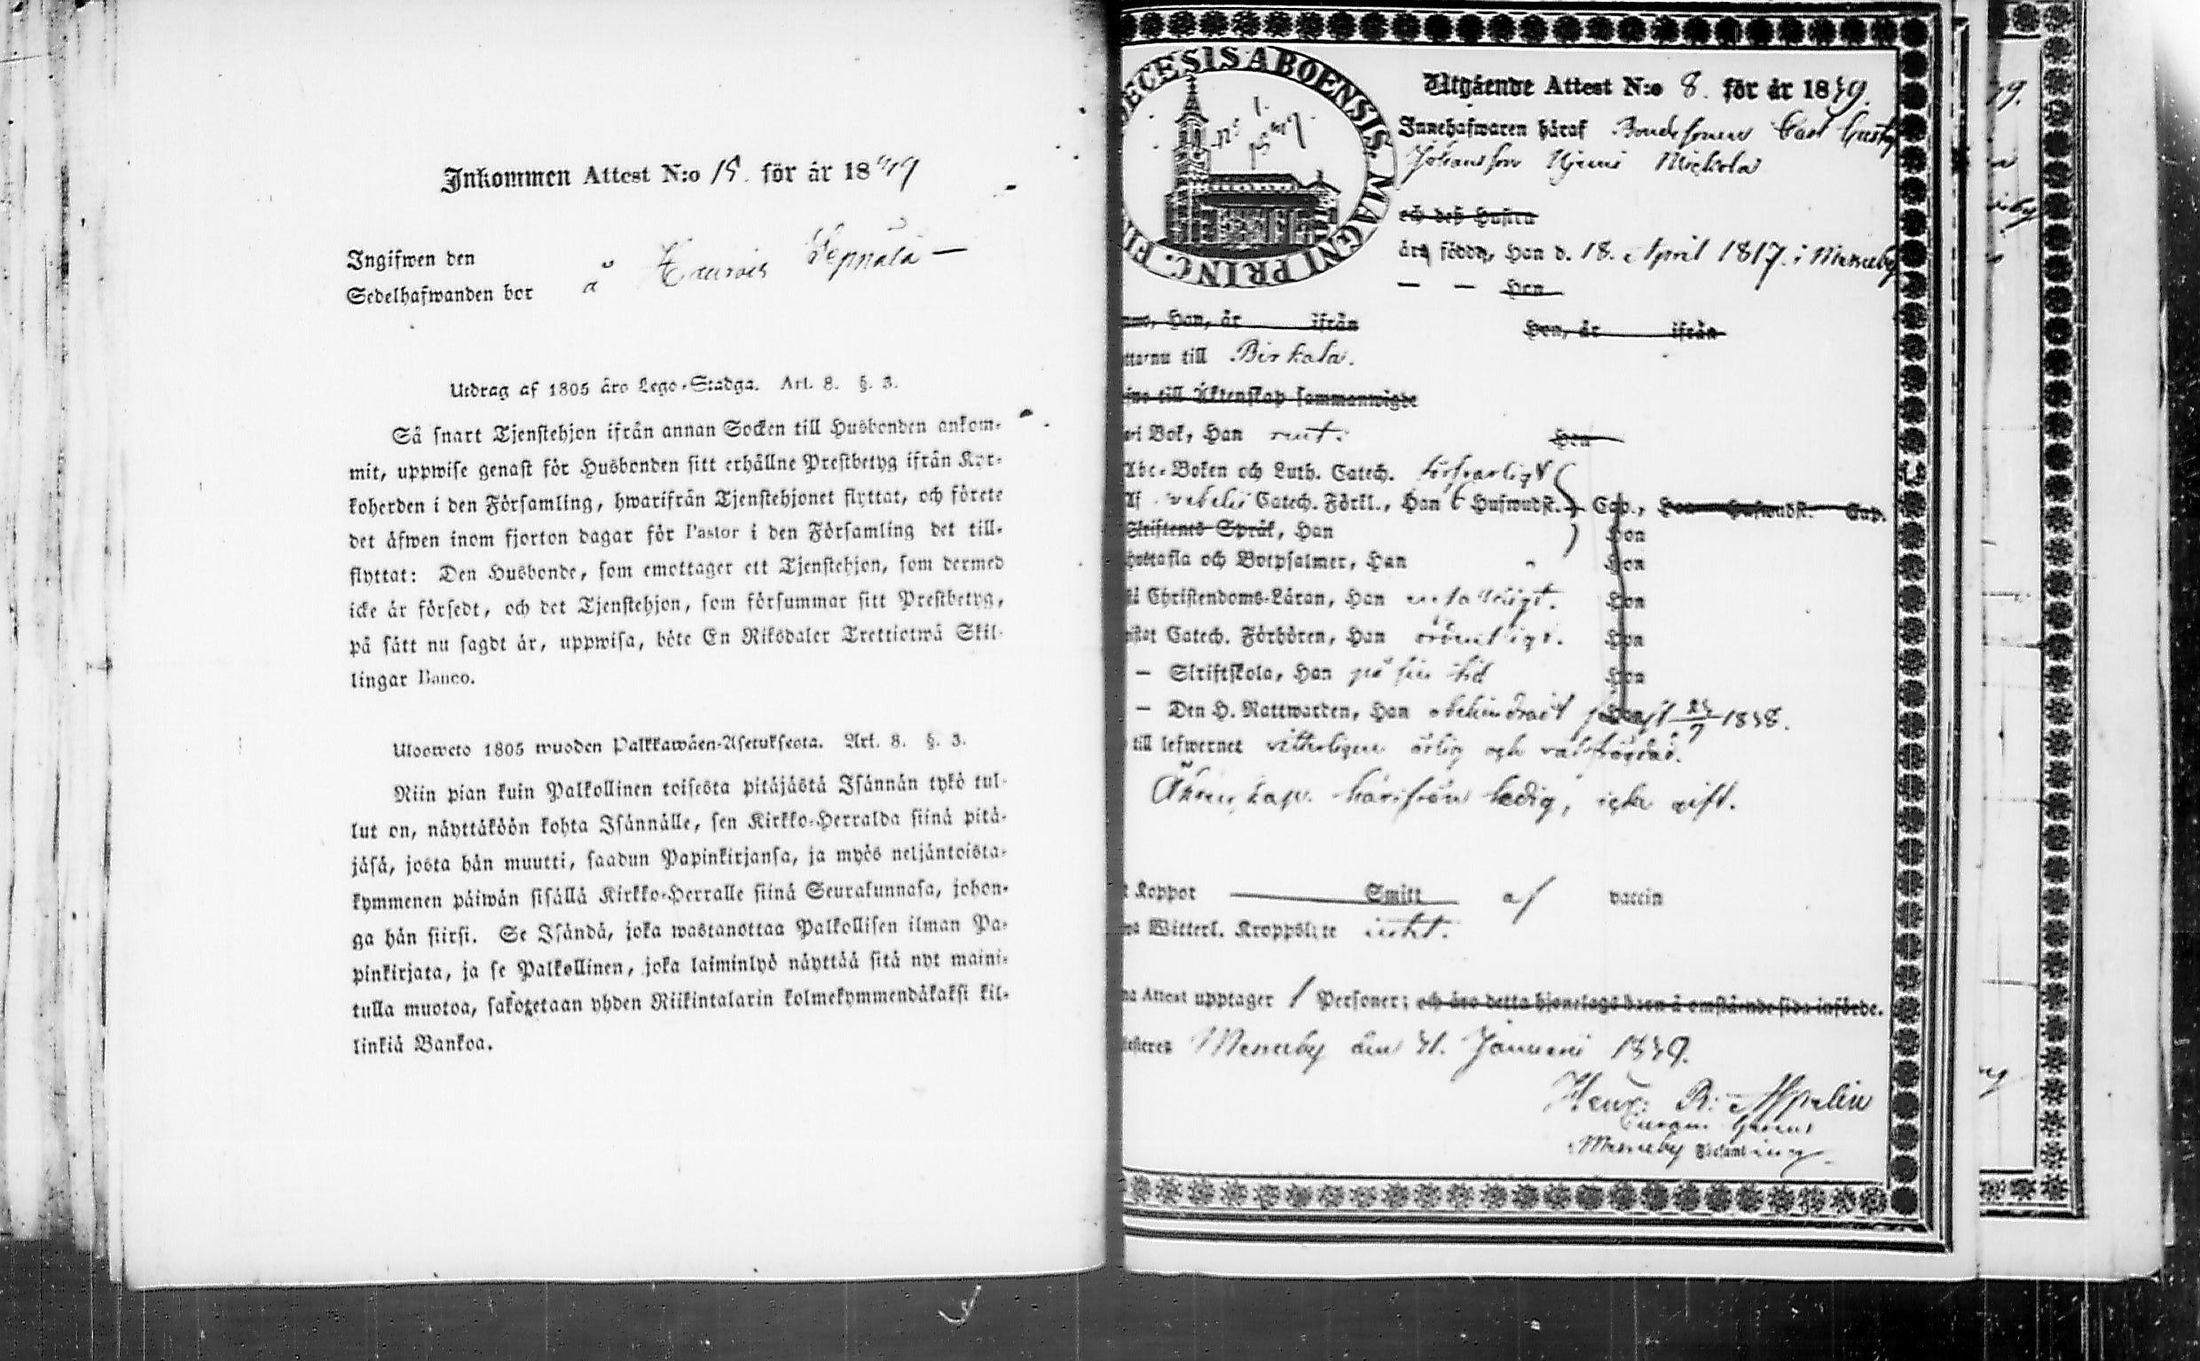 Inkommen Attest N:o 15. för år 1849
Ingifwen den
Sedelhafwanden bor å
Utdrag af 1805 års Lego-Stadga. Art. 8. §. 3.
Så snart Tjenstehjon ifrån annan Socken till Husbonden ankom-
mit, uppwise genast för Husbonden sitt erhållne Prestbetyg ifrån Kyr-
koherden i den Församling, hwarifrån Tjenstehjonet flyttat, och förete
det äfwen inom fjorton dagar för Pastor i den Församling det till-
flyttat: Den Husbonde, som emottager ett Tjenstehjon, som dermed
icke är försedt, och det Tjenstehjon, som försummar sitt Prestbetyg,
på sätt nu sagdt är, uppwisa, böte En Riksdaler Trettiotwå Skil-
lingar Banco.
Ulosweto 1805 wuoden Palkkawäen-Asetuksesta. Art. 8. §. 3.
Niin pian kuin Palkollinen toisesta pitäjästä Isännän tykö tul-
lut on, näyttäköön kohta Isännälle, sen Kirkko-Herralda siinä pitä-
jäsä, josta hän muutti, saadun Papinkirjansa, ja myös neljäntoista-
kymmenen päiwän sisällä Kirkko-Herralle siinä Seurakunnasa, johon-
ga hän siirsi. Se Isändä, joka wastanottaa Palkollisen ilman Pa-
pinkirjata, ja se Palkollinen, joka laiminlyö näyttää sitä nyt maini-
tulla muotoa, sakotetaan yhden Riikintalarin kolmekymmendäkaksi kil-
linkiä Bankoa.
ECESIS ABOENSIS. MAGNI PRINC. FI
Utgående Attest N:o 8. för år 1839.
Innehafwaren häraf Bondesonen Carl Gust
Johansson Mickola
och deß Hustru
äro födde, Han d. 18. April 1817. i Messuby
— — Hon
Han, år ifrån Hon, år ifrån
till Birkala.
till Äktenskap sammanwigde
i Bok, Han rent. Hon
Abc-Boken och Luth. Catech. försvarligt
Af Catech. Förkl., Han 6 Hufwudst. Cap., Hon Hufwudst. Cap.
Skriftens Språk, Han Hon
Hustafla och Botpsalmer, Han " Hon
Christendoms-Läran, Han Hon
Catech. Förhören, Han ordentligt. Hon
— Skriftskola, Han på sin tid Hon
— Den H. Nattwarden, Han obehindradt Hon 1838.
till lefwernet ärlig och
härifrån ledig, icke gift.
Koppor Smitt af vaccin
Witterl. Kroppslyte intet.
Attest upptager 1 Personer; och äro detta hjonelags barn å omstående sida införde.
Messuby den 31. Januarii 1839.
Henr: R: Appelin
Messuby Församling